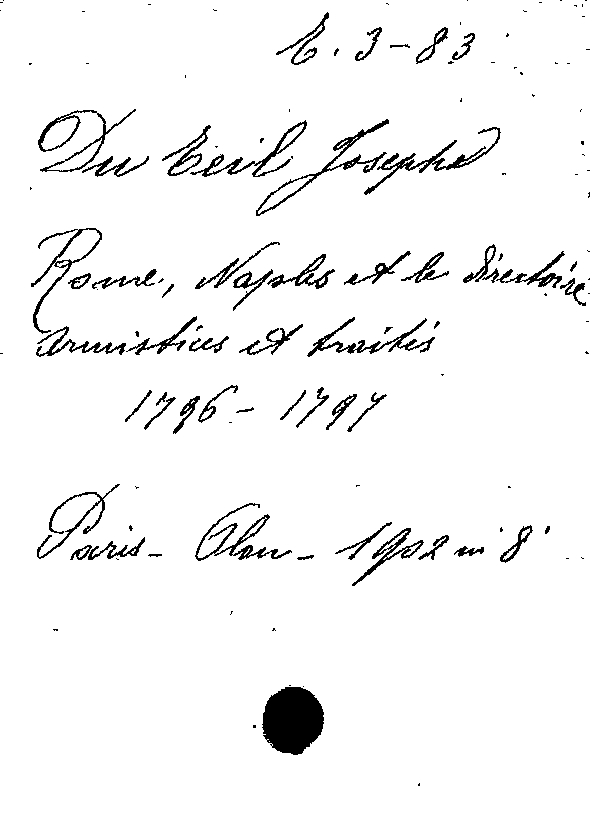 E. 3-83
Du Teil Joseph
Rome, Naples et le directoire
armistices et traités
1796-1797
Paris - Plon - 1902 in 8°